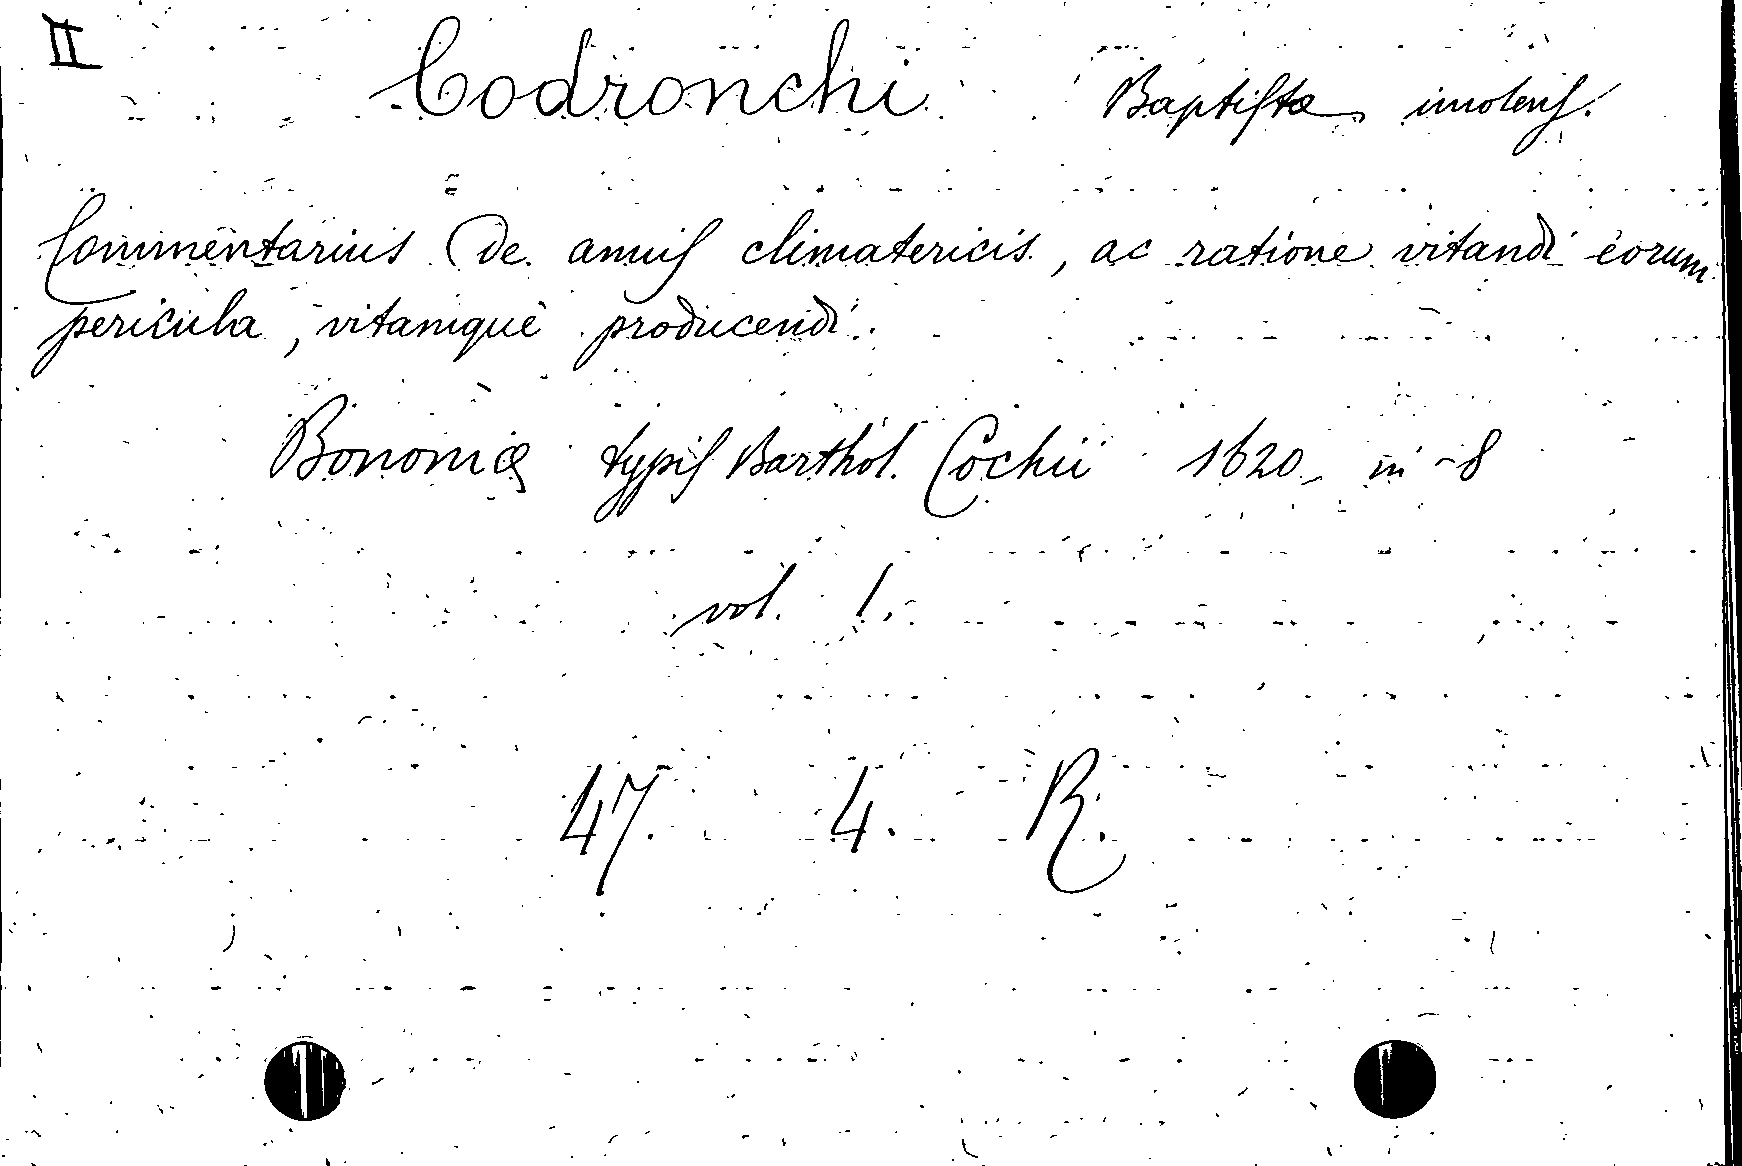 II
Codronchi Baptistæ imolens.
Commentarius De annis climatericis, ac ratione vitandi eorum
pericula, vitamque producendi.
Bononiæ typis Barthol. Cochii 1620 in-8
vol. 1.
47. 4. R.